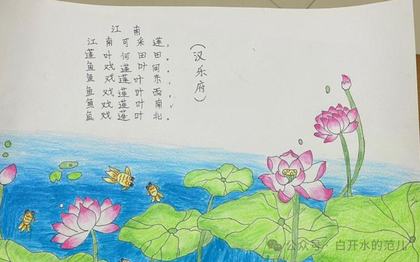 江南
江南可采莲，
莲叶何田田。
鱼戏莲叶间，
鱼戏莲叶东，
鱼戏莲叶西，
鱼戏莲叶南，
鱼戏莲叶北。
（汉乐府）
公众号 · 白开水的范儿